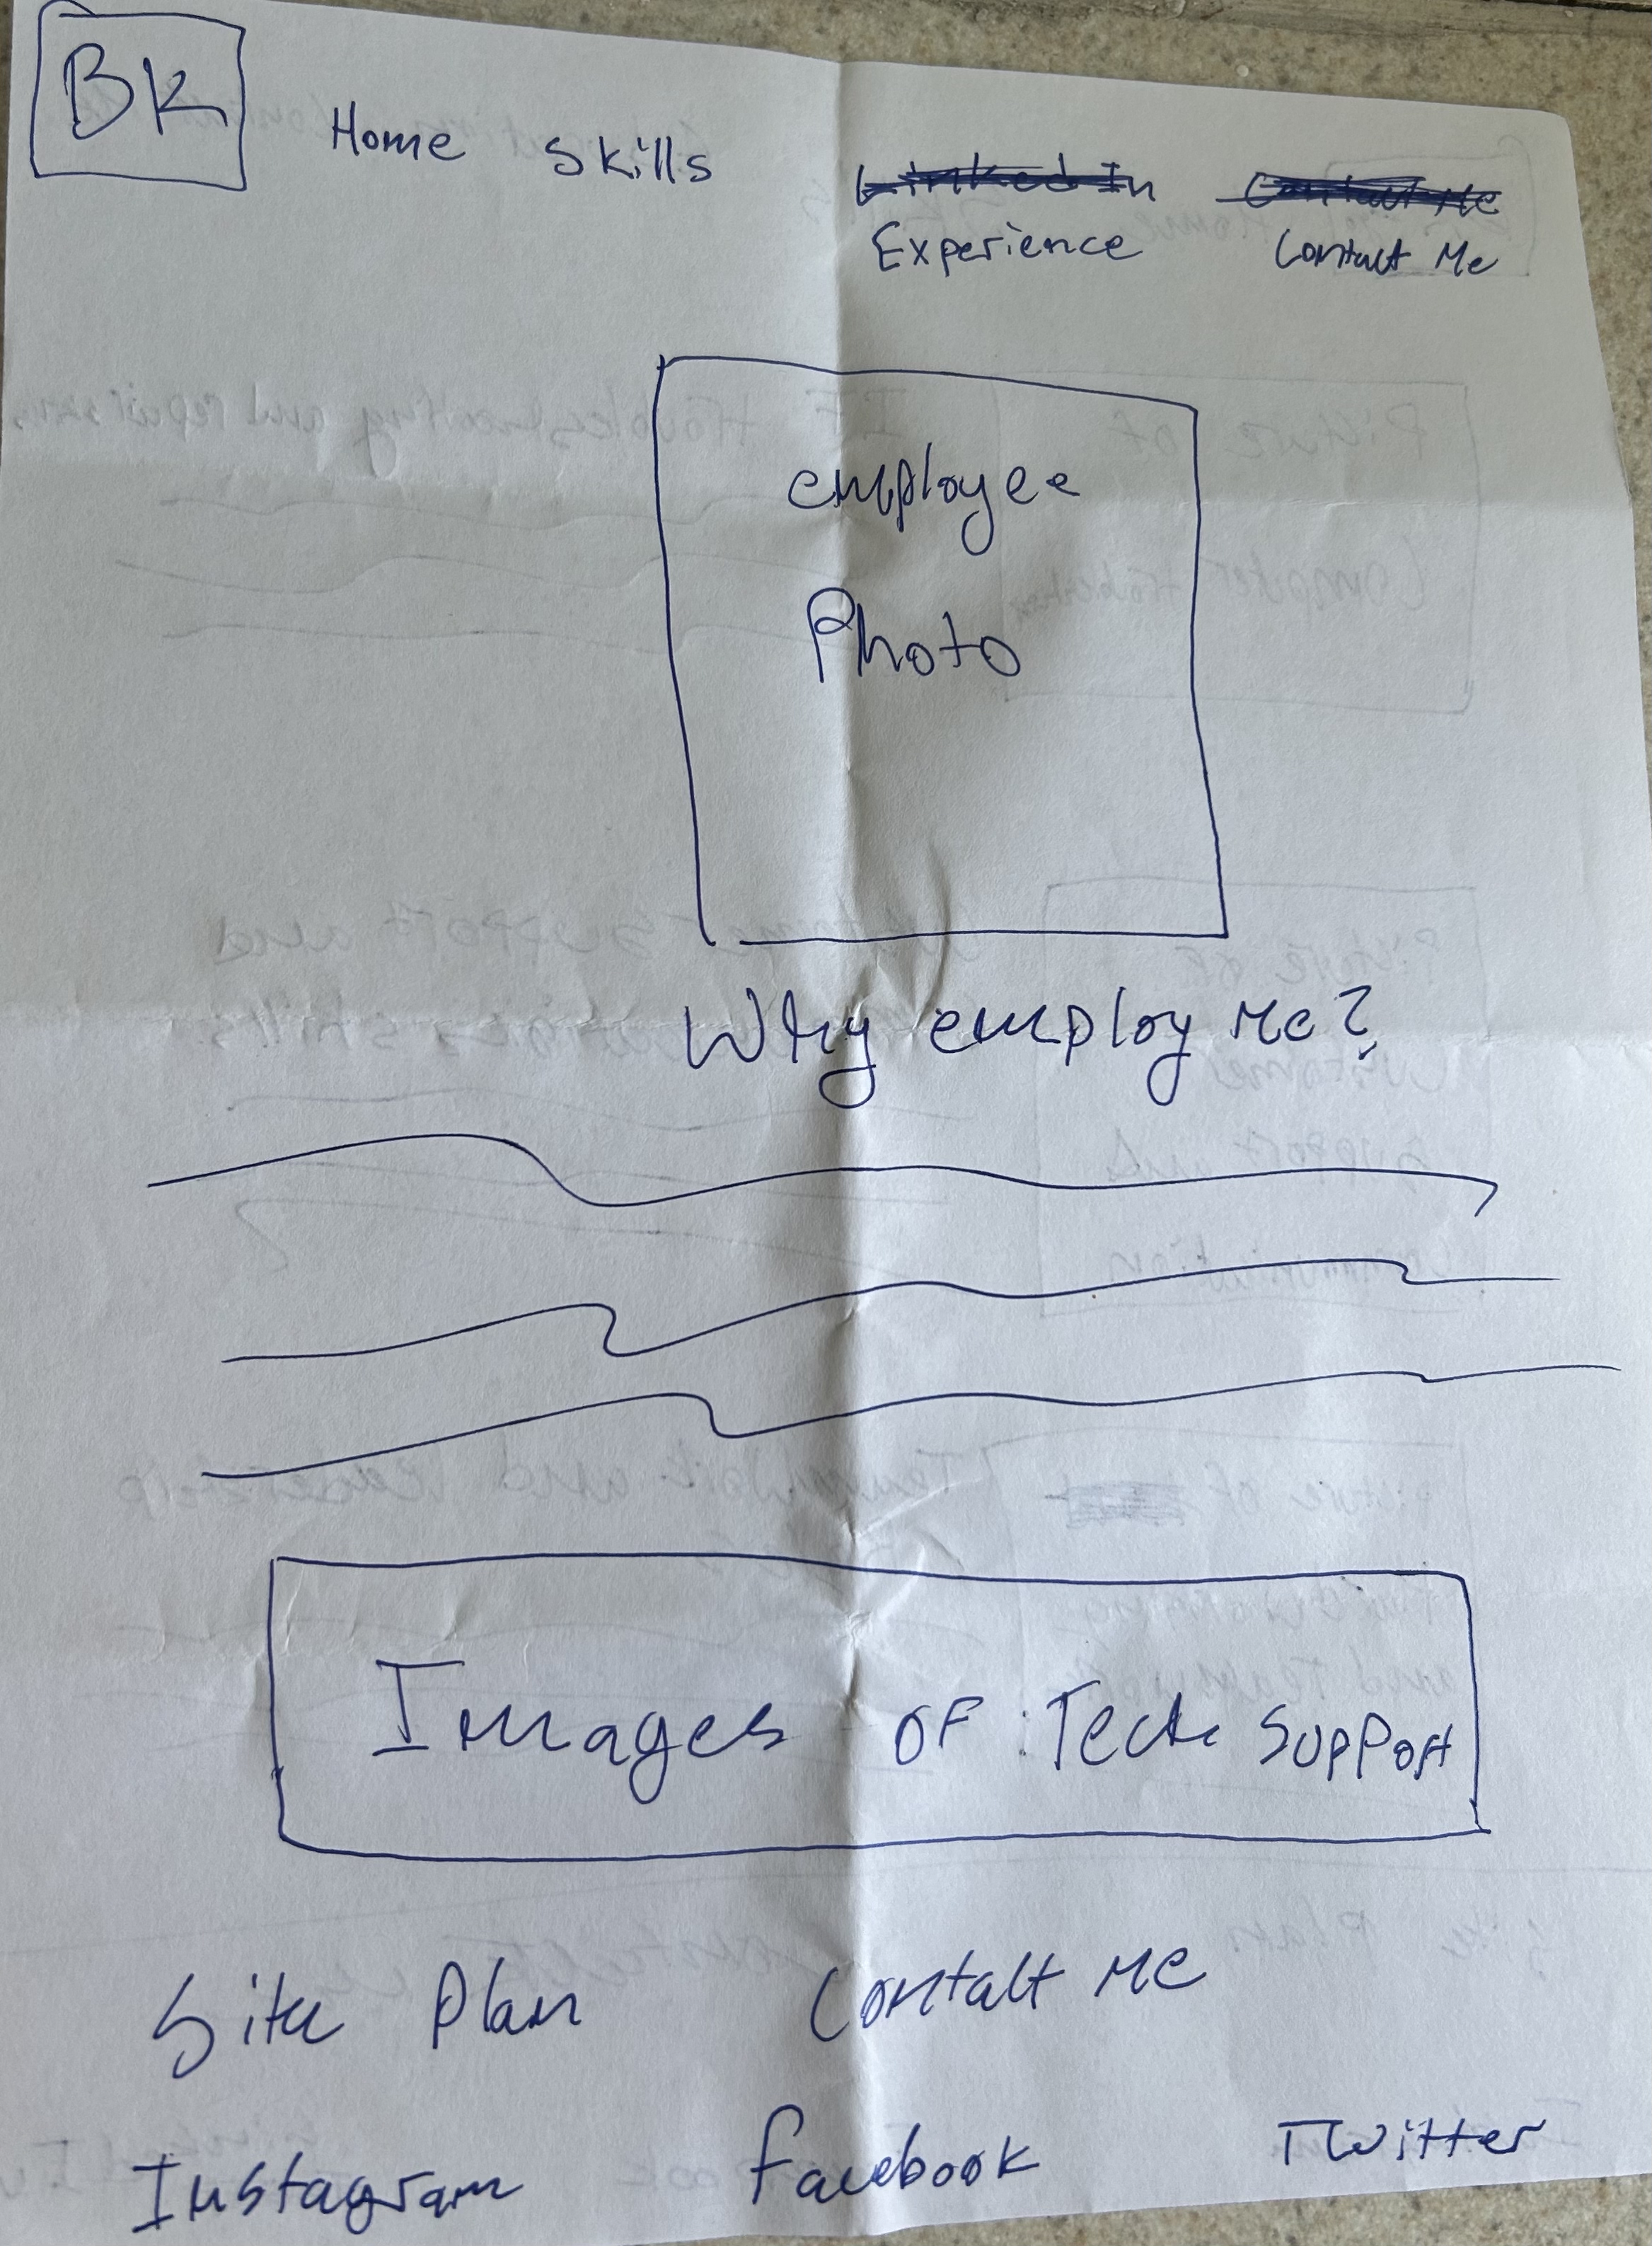 BK
Home Skills
Linked In Contact Me
Experience Contact Me
employee
Photo
Why employ Me?
Images of Tech Support
Site Plan Contact Me
Instagram Facebook Twitter